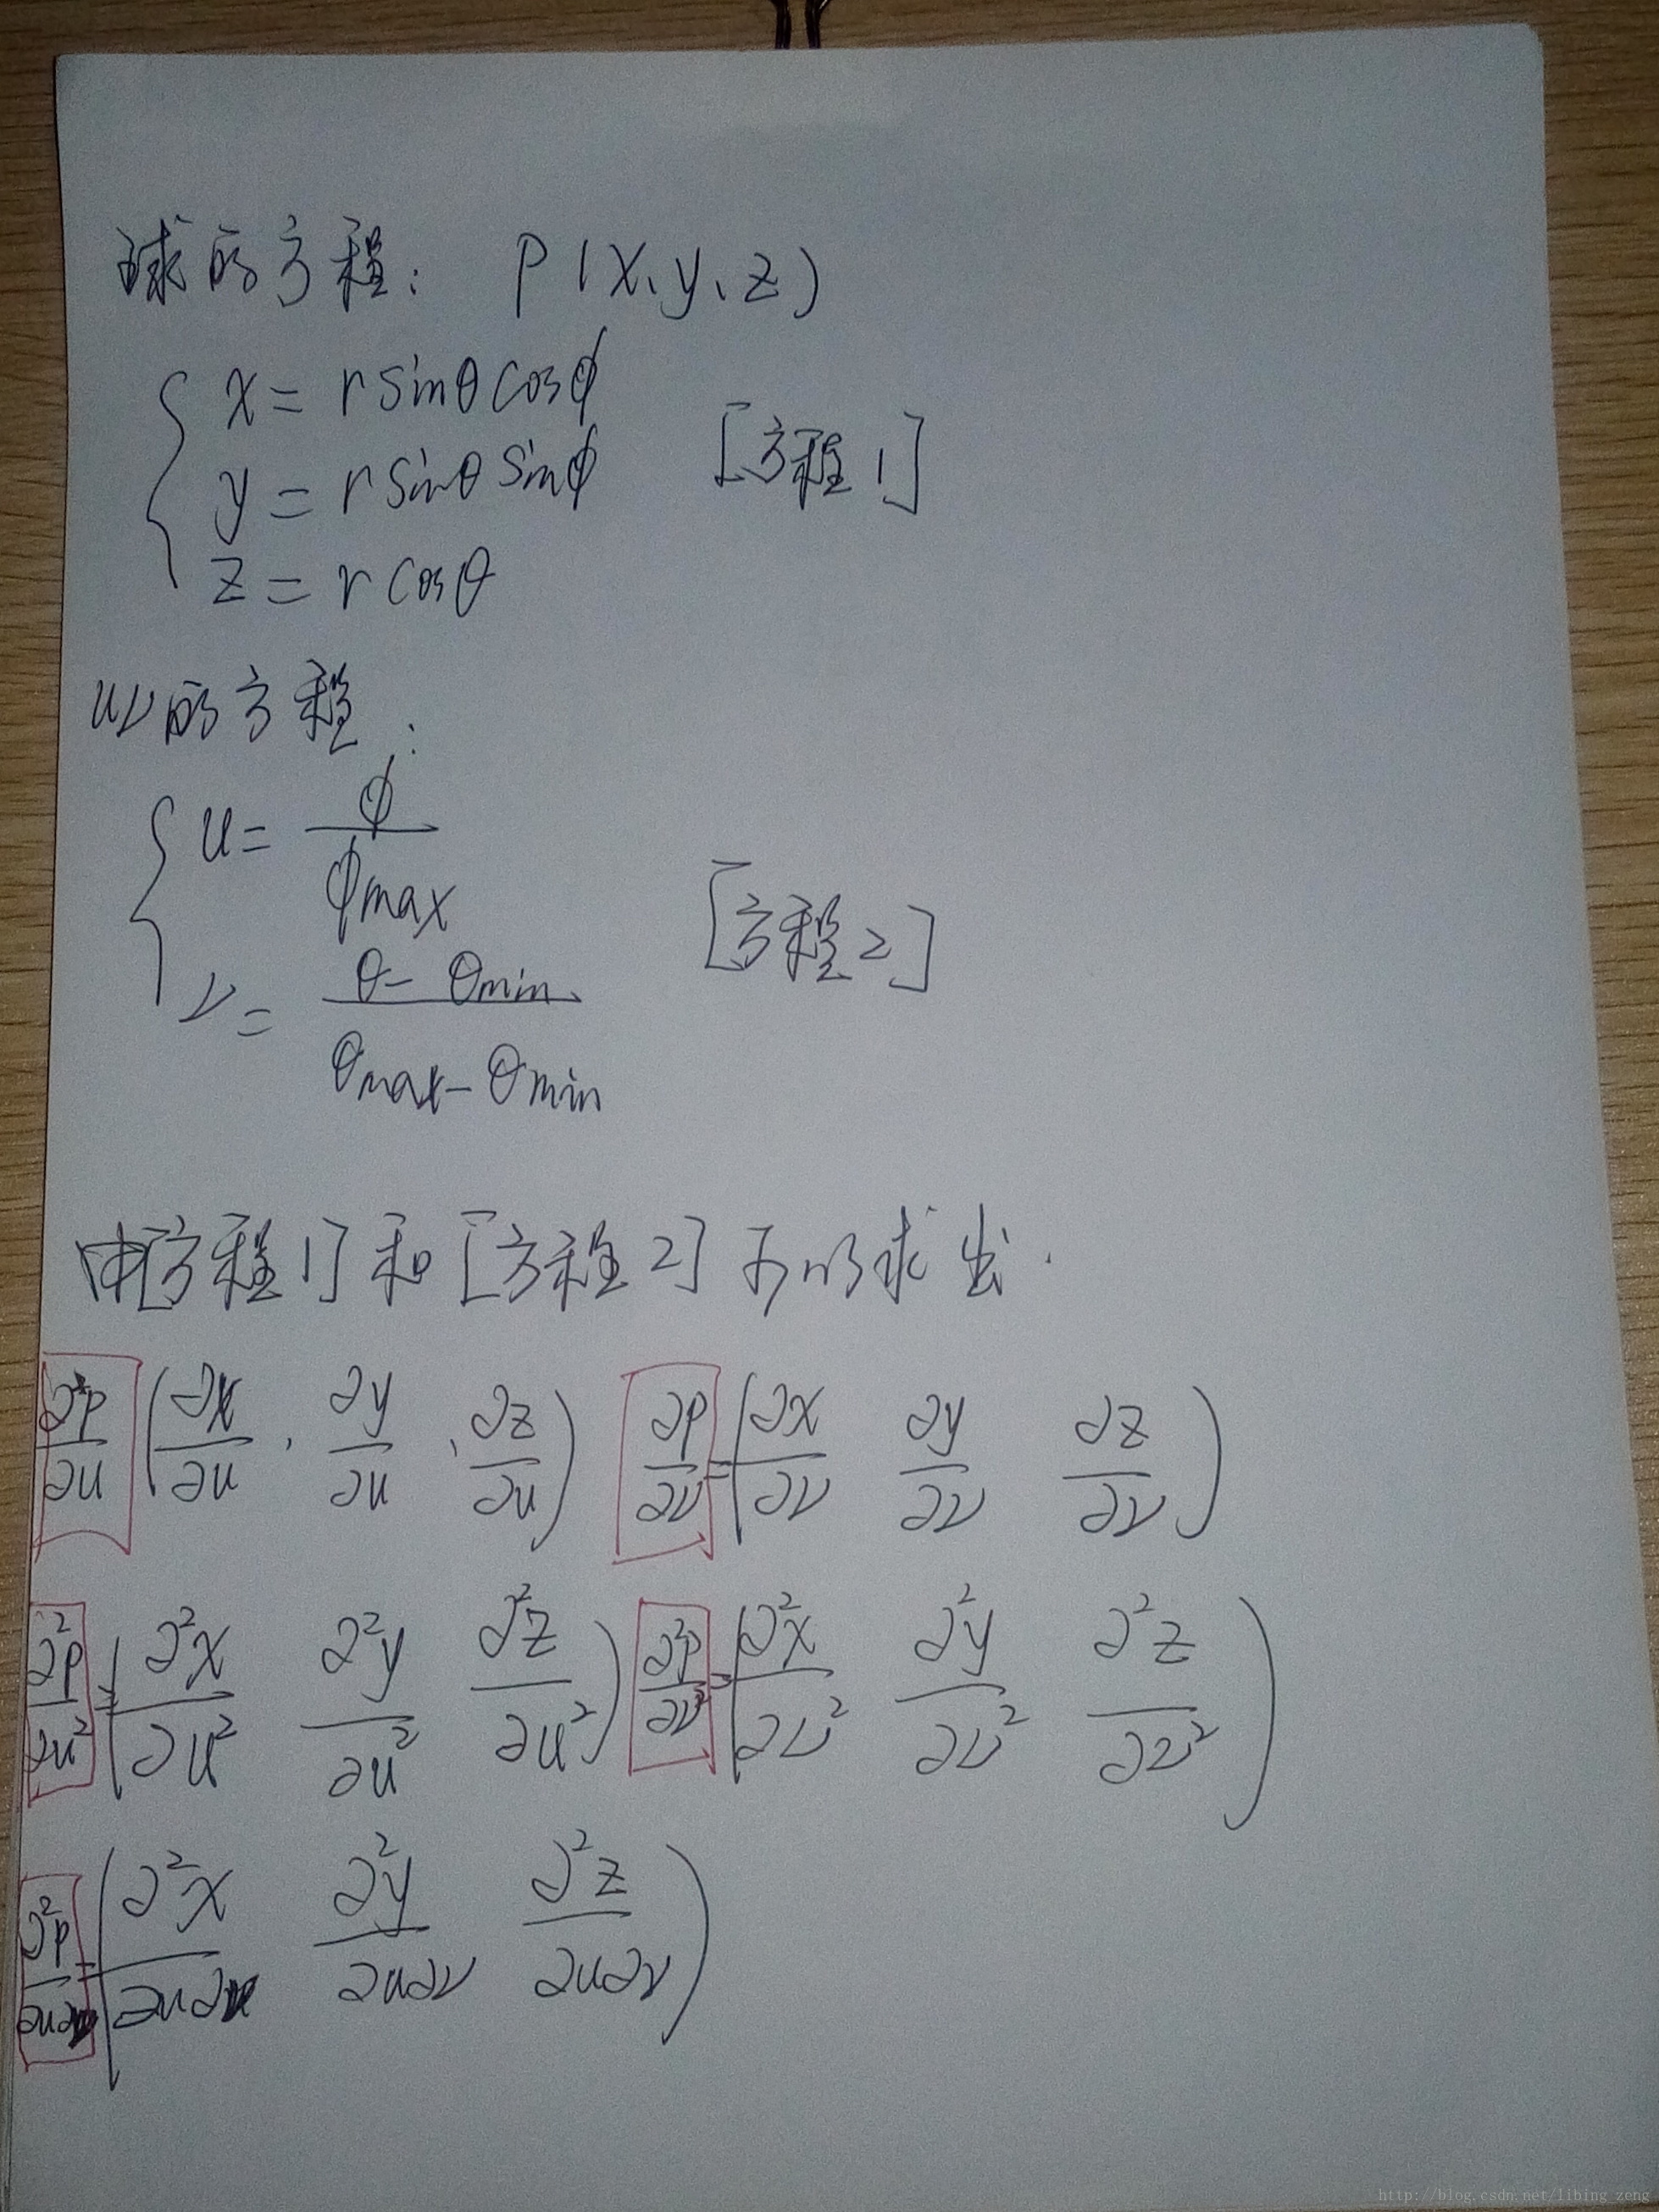 球的方程: P(x, y, z)
{ x = r sinθ cosϕ
y = r sinθ sinϕ [方程1]
z = r cosθ
uv的方程:
{ u = ϕ / ϕmax
v = (θ - θmin) / (θmax - θmin) [方程2]
由[方程1]和[方程2]可以求出.
∂P/∂u (∂x/∂u, ∂y/∂u, ∂z/∂u) ∂P/∂v = (∂x/∂v ∂y/∂v ∂z/∂v)
∂²P/∂u² = (∂²x/∂u² ∂²y/∂u² ∂²z/∂u²) ∂²P/∂v² = (∂²x/∂v² ∂²y/∂v² ∂²z/∂v²)
∂²P/∂u∂v = (∂²x/∂u∂v ∂²y/∂u∂v ∂²z/∂u∂v)
http://blog.csdn.net/libing_zeng